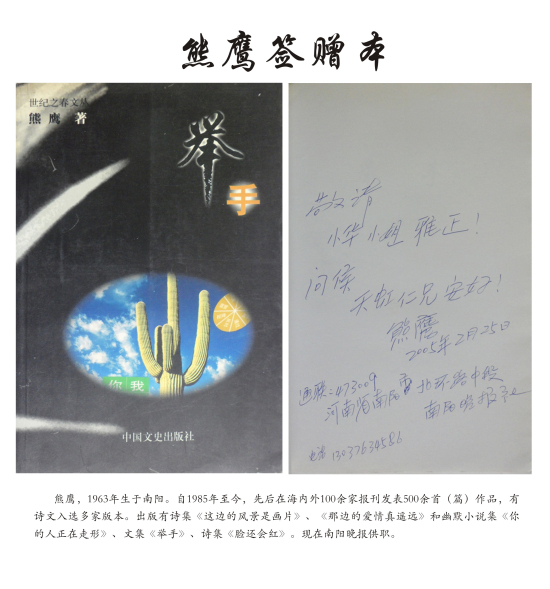 熊鹰签赠本
世纪之春文丛
熊 鹰 著
举
手
你 我
中国文史出版社
敬请
小华小姐雅正！
问候
天虹仁兄安好！
熊鹰
2005年2月25日
通联：473009
河南省南阳市北环路中段
南阳晚报社
电话 13037634586
熊鹰，1963年生于南阳。自1985年至今，先后在海内外100余家报刊发表500余首（篇）作品，有
诗文入选多家版本。出版有诗集《这边的风景是画片》、《那边的爱情真遥远》和幽默小说集《你
的人正在走形》、文集《举手》、诗集《脸还会红》。现在南阳晚报供职。